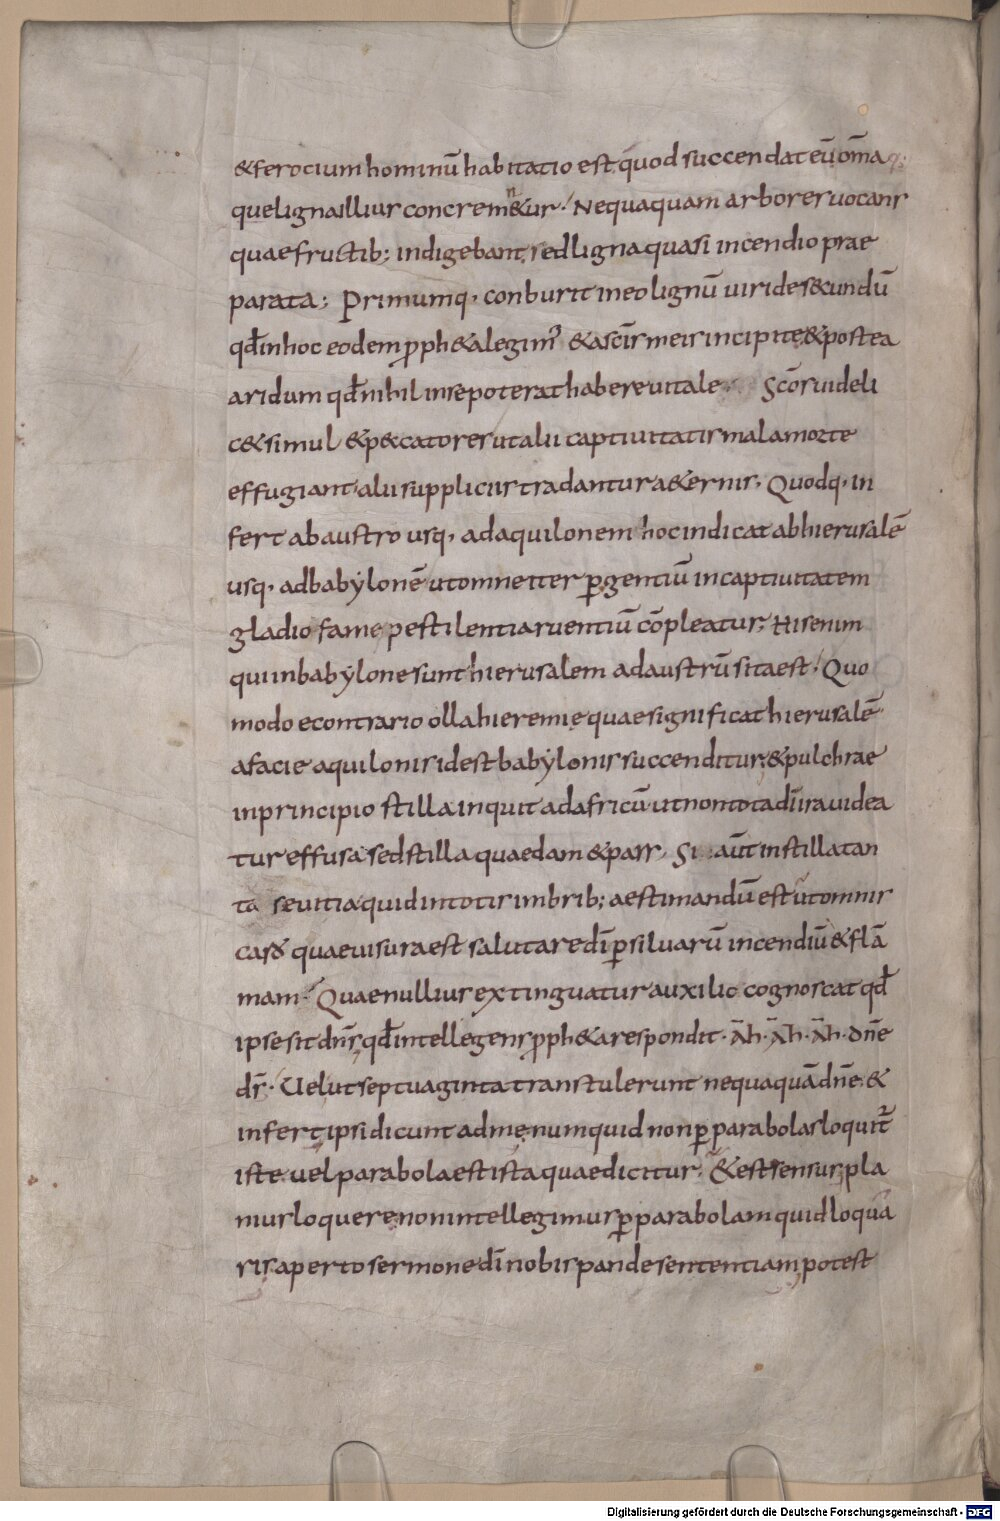 &ferocium hominū habitatio est. quod succendat eū om̄a q;
que ligna illius concremen&ur. Nequaquam arbores uocans
quae fructib; indigebant, sed ligna quasi incendio prae
parata; Primumq. conburit in eo lignū uiride secundū
qđ in hoc eodem proph&a legim' & a scīs meis incipite, & postea
aridum qđ nihil in se poterat habere uitale. Scōs uideli
c& simul & peccatores ut alii captiuitatis mala morte
effugiant. alii suppliciis tradantur a&ernis. Quodq. in
fert ab austro usq. ad aquilonem hoc indicat ab hierusalē
usq. ad babylonē ut omne iter pergentiū in captiuitatem
gladio fame pestilentia ruentiū cōpleatur; His enim
qui in babylone sunt hierusalem ad austrū sita est. Quo
modo econtrario olla hieremię quae significat hierusalē
a facie aquilonis id est babylonis succenditur; & pulchrae
in principio stilla inquit ad africū ut non tota dn̄i ira uidea
tur effusa sed stilla quaedam & pars. Si aūt in stilla tan
ta seuitia quid in totis imbrib; aestimandū est ut omnis
caro quae uisura est salutare dī per siluarū incendiū & flā
mam. Quae nullius extinguatur auxilio cognoscat qđ
ipse sit dn̄s, qđ intellegens proph&a respondit. āh. āh. āh. dn̄e
ds̄. Uelut septuaginta transtulerunt nequaquā dn̄e. &
infert, ipsi dicunt ad me, numquid non per parabolas loquit̄
iste. uel parabola est ista quae dicitur. & est sensus; pla
nius loquere, non intellegimus per parabolam quid loqua
ris, aperto sermone dī nobis pande sententiam, potest
Digitalisierung gefördert durch die Deutsche Forschungsgemeinschaft - DFG